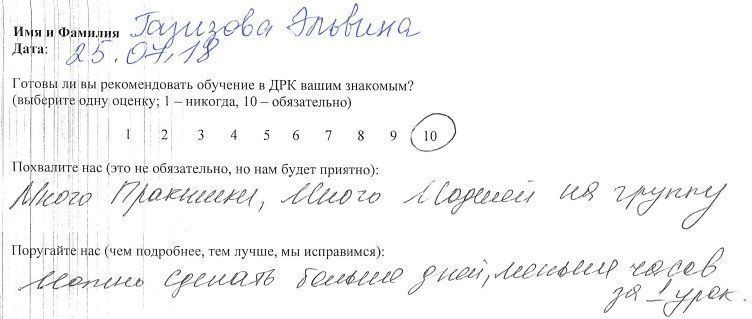 Имя и Фамилия Газизова Эльвина
Дата: 25.07.18
Готовы ли вы рекомендовать обучение в ДРК вашим знакомым?
(выберите одну оценку; 1 – никогда, 10 – обязательно)
1 2 3 4 5 6 7 8 9 10
Похвалите нас (это не обязательно, но нам будет приятно):
Много Практики, Много Моделей на группу
Поругайте нас (чем подробнее, тем лучше, мы исправимся):
Можно сделать больше дней, меньше часов
за 1 урок.